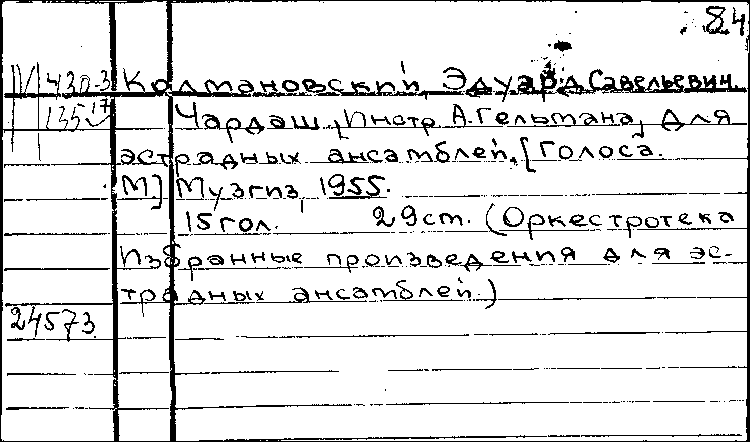 84
IV 430-3 Колмановский, Эдуард Савельевич.
135 17 Чардаш, Инстр. А. Гельмана, для
эстрадных ансамблей. [Голоса.
М.] Музгиз, 1955.
15 гол. 29 cm. (Оркестротека
Избранные произведения для эс-
традных ансамблей.)
24573.